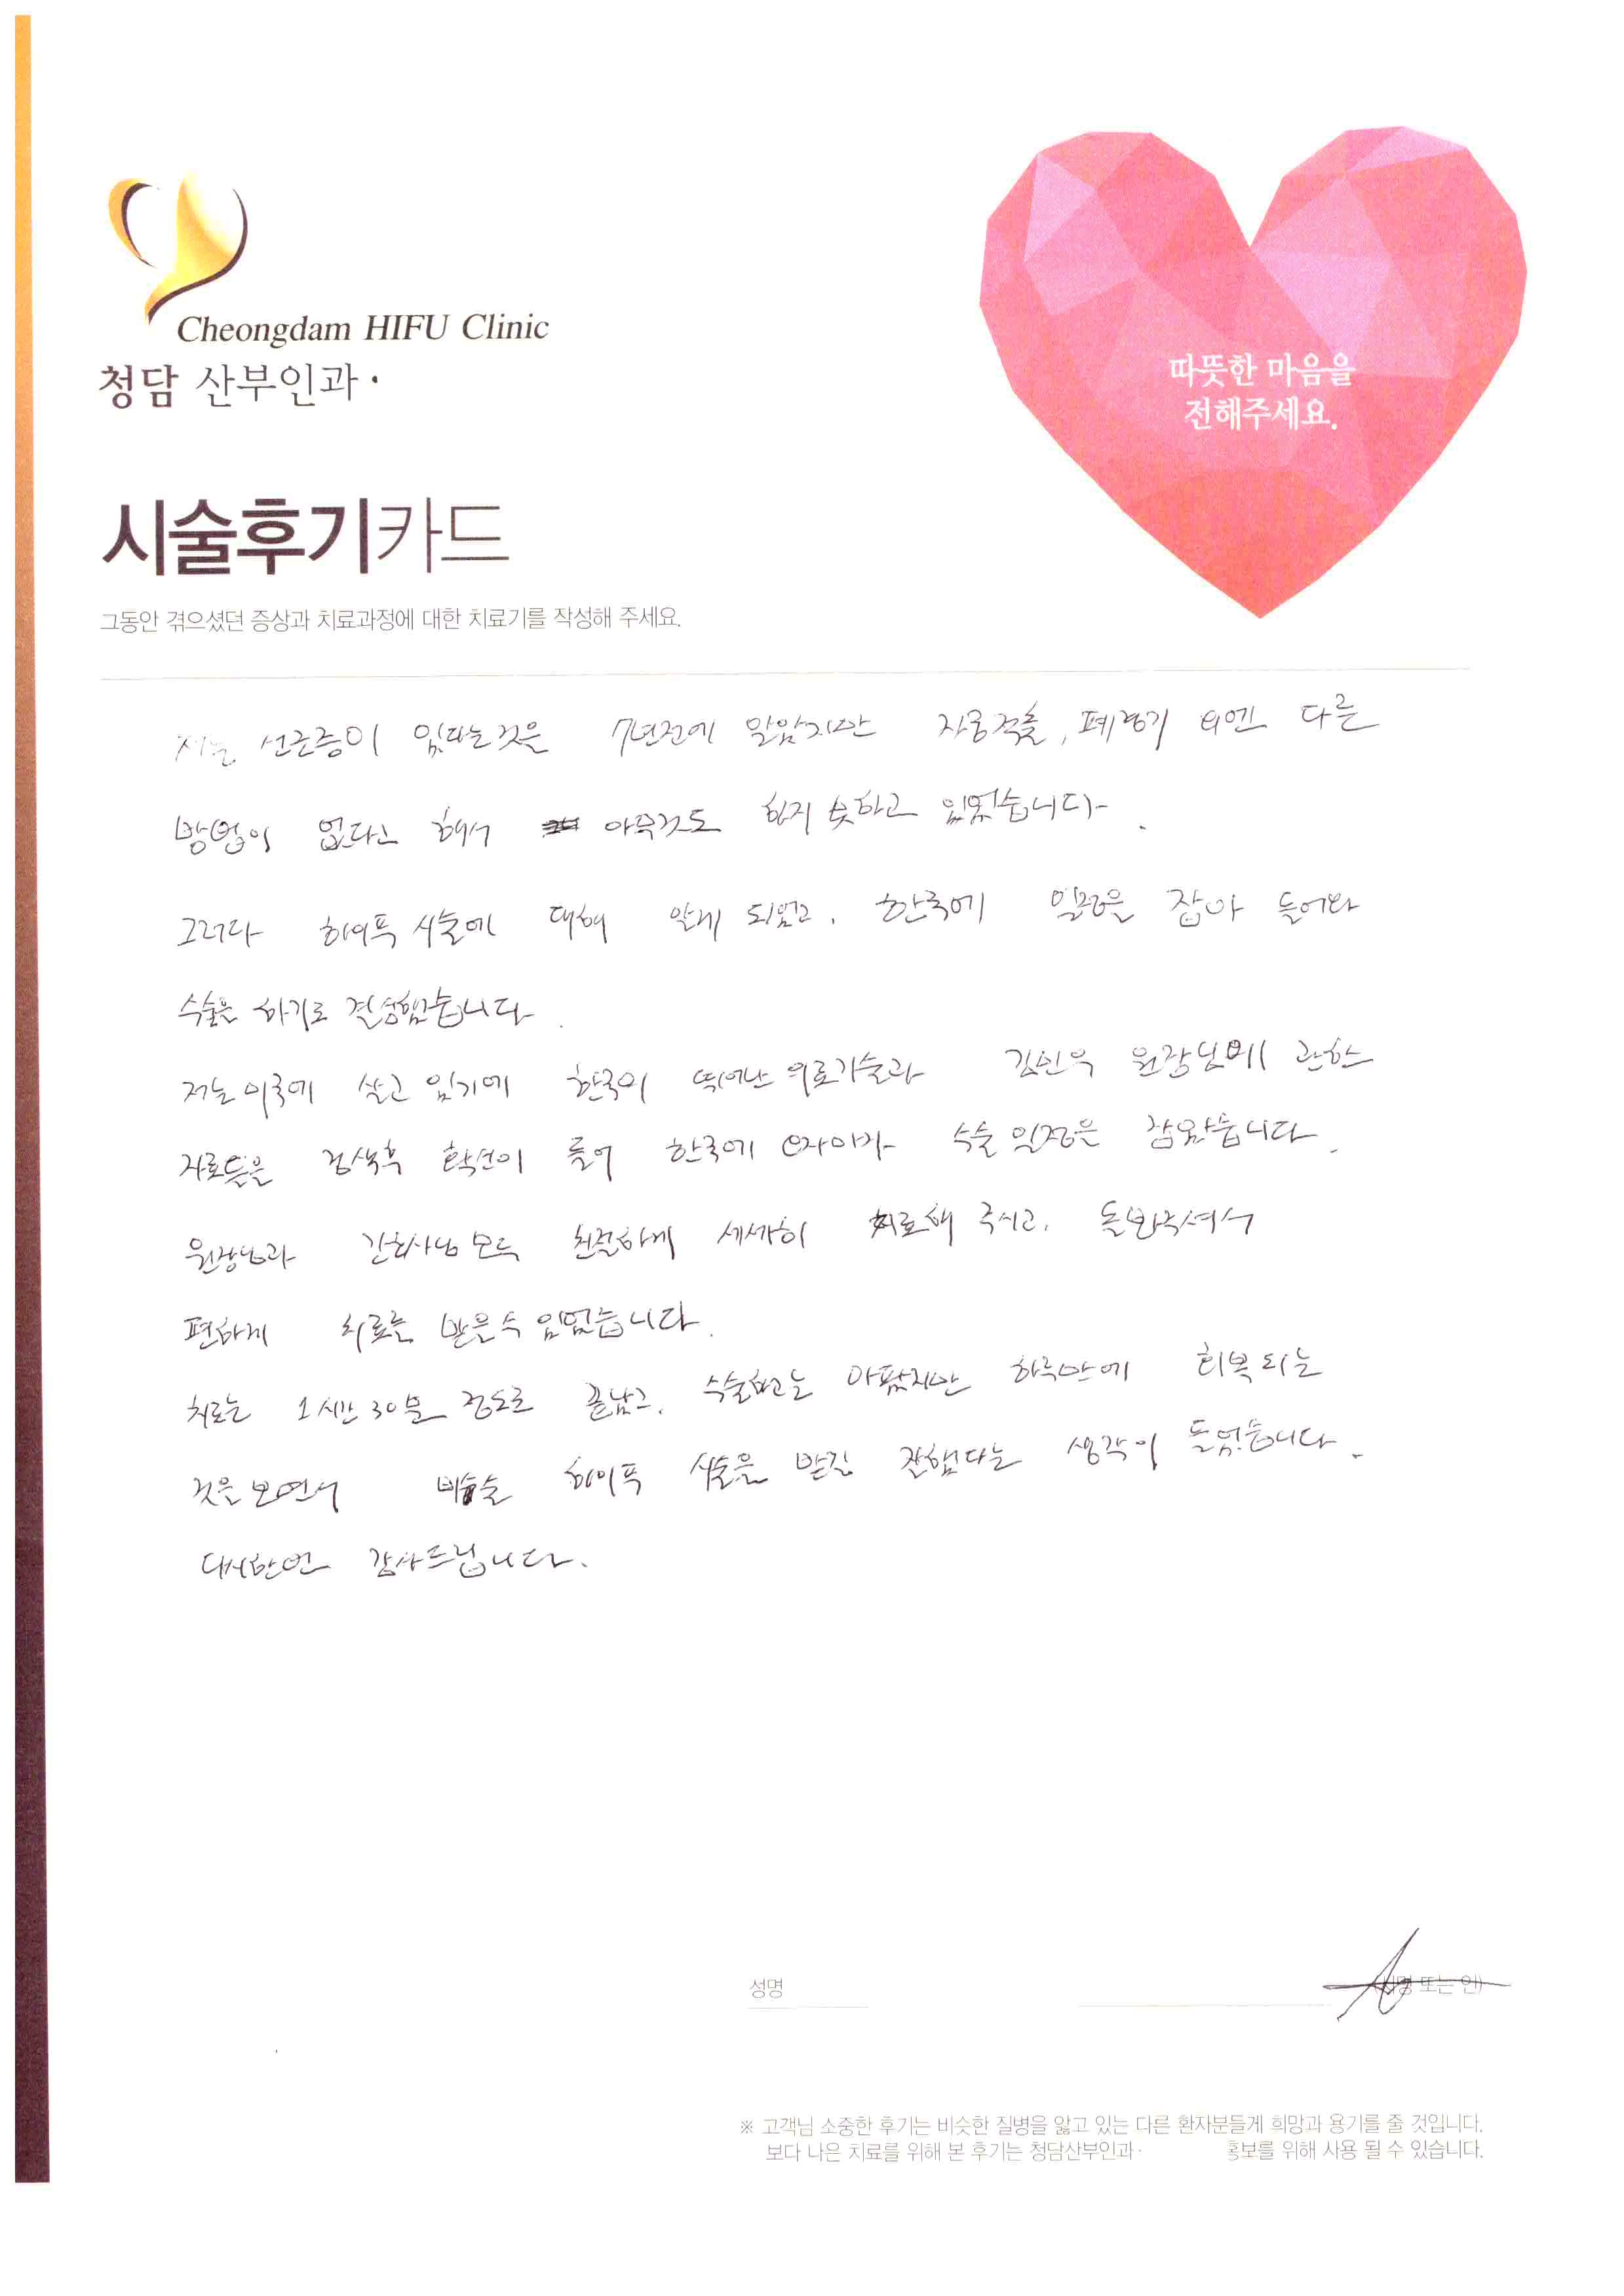 Cheongdam HIFU Clinic
청담 산부인과·
따뜻한 마음을
전해주세요.
시술후기카드
그동안 겪으셨던 증상과 치료과정에 대한 치료기를 작성해 주세요.
저는 선근증이 있다는것은 7년전에 알았지만 자궁적출, 폐경기 외엔 다른
방법이 없다고 해서 아무것도 하지 못하고 있었습니다.
그러다 하이푸 시술에 대해 알게 되었고, 한국에 일정을 잡아 들어와
수술을 하기로 결정했습니다.
저는 미국에 살고 있기에 한국이 뛰어난 의료기술과 김민우 원장님에 관한
자료들을 검색후 확신이 들어 한국에 오자마자 수술 일정을 잡았습니다.
원장님과 간호사님 모두 친절하게 세세히 치료해 주시고, 돌봐주셔서
편하게 치료를 받을수 있었습니다.
치료는 1시간 30분 정도로 끝났고, 수술하고는 아팠지만 하루만에 회복되는
것을 보면서 비수술 하이푸 시술을 받길 잘했다는 생각이 들었습니다.
다시한번 감사드립니다.
성명
(서명 또는 인)
※ 고객님 소중한 후기는 비슷한 질병을 앓고 있는 다른 환자분들게 희망과 용기를 줄 것입니다.
보다 나은 치료를 위해 본 후기는 청담산부인과· 홍보를 위해 사용 될 수 있습니다.